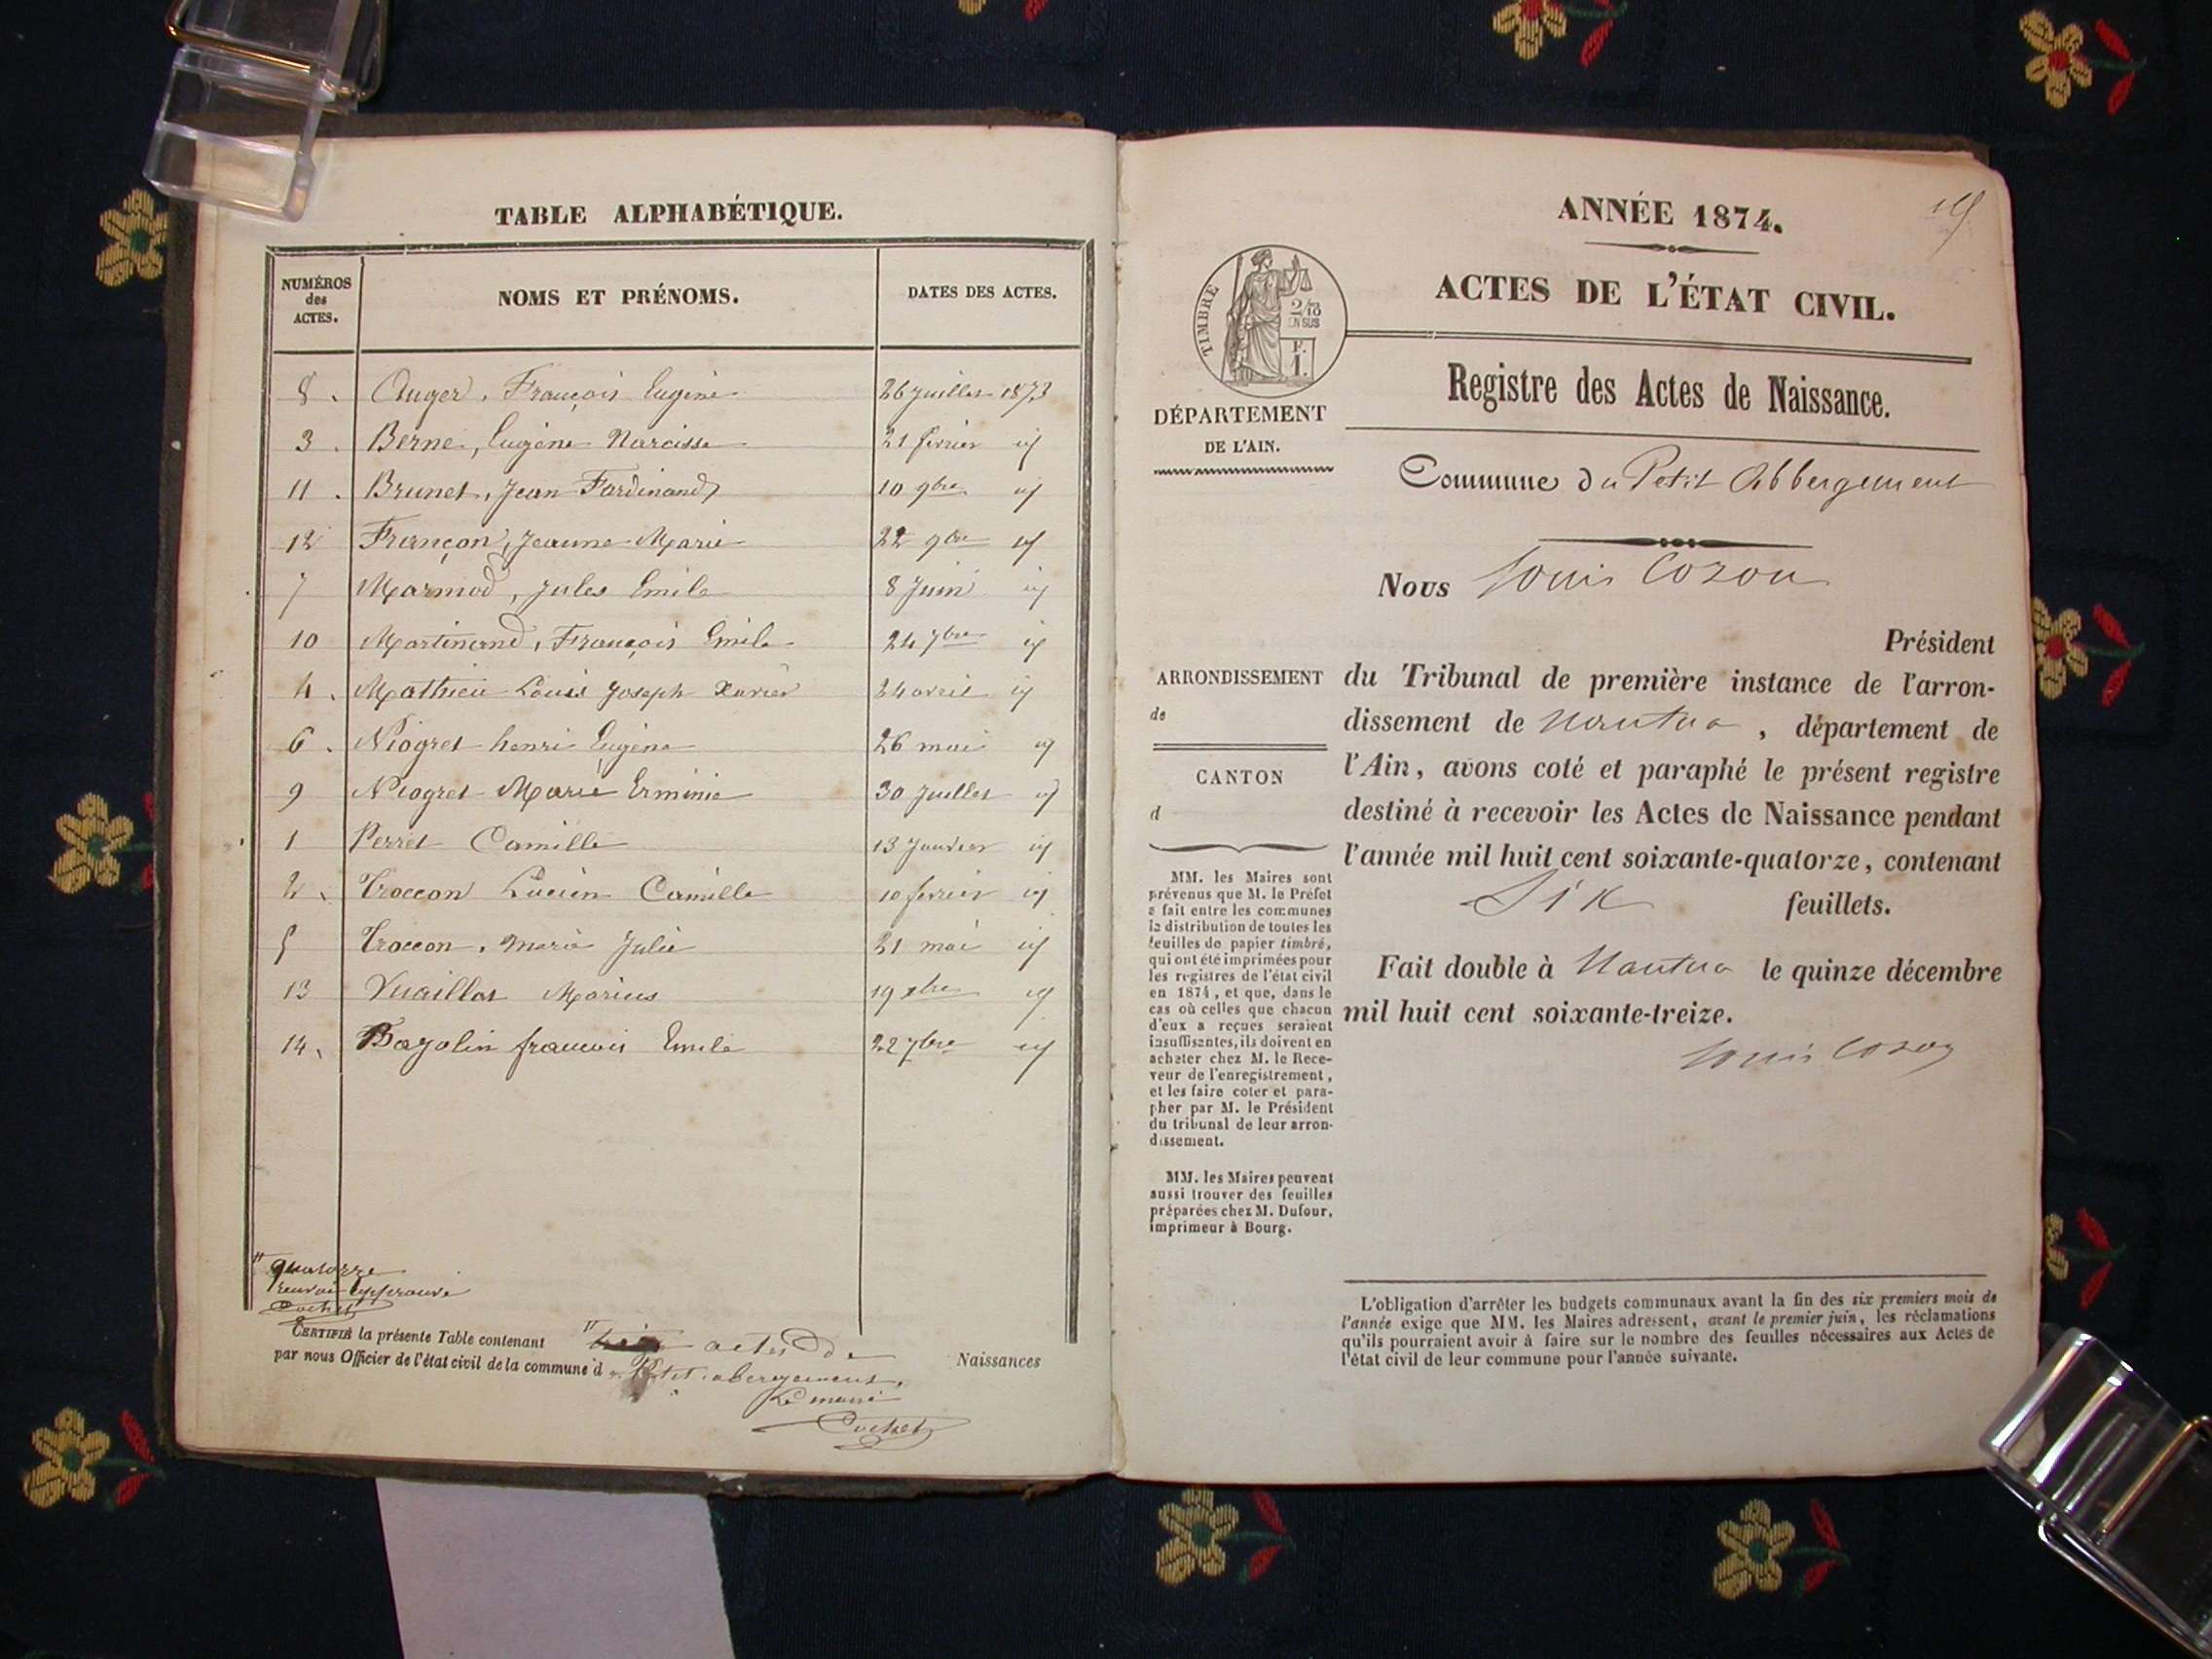 TABLE ALPHABÉTIQUE.
NUMÉROS des ACTES. NOMS ET PRÉNOMS. DATES DES ACTES.
8. Auger, François Eugène 26 juillet 1873
3. Berne, Eugène Narcisse 21 février id
11. Brunet, Jean Ferdinand 10 9bre id
12 Françon, Jeanne Marie 22 9bre id
7 Marmod, Jules Emile 8 Juin id
10 Martinand, François Emile 24 7bre id
4. Mathieu Louis Joseph Xavier 24 avril id
6. Niogret henri Eugène 26 mai id
9 Niogret Marie Erminie 30 Juillet id
1 Perret Camille 13 Janvier id
2. Troccon Lucien Camille 10 février id
5 Troccon, Marie Julie 21 mai id
13 Vuaillat Marius 19 xbre id
14. Bagolin francois Emile 22 7bre id
" quatorze
renvoi approuvé
Cochet
CERTIFIÉ la présente Table contenant " actes de Naissances
par nous Officier de l'état civil de la commune d Petit abergement,
Le maire
Cochet
ANNÉE 1874.
ACTES DE L'ÉTAT CIVIL.
TIMBRE
2/10
EN SUS
F.
1.
Registre des Actes de Naissance.
DÉPARTEMENT
DE L'AIN.
Commune du Petit Abbergement
Nous Louis Cozon
Président
ARRONDISSEMENT
de
CANTON
d
du Tribunal de première instance de l'arron-
dissement de Nantua, département de
l'Ain, avons coté et paraphé le présent registre
destiné à recevoir les Actes de Naissance pendant
l'année mil huit cent soixante-quatorze, contenant
Six feuillets.
Fait double à Nantua le quinze décembre
mil huit cent soixante-treize.
Louis Cozon
MM. les Maires sont
prévenus que M. le Préfet
a fait entre les communes
la distribution de toutes les
feuilles de papier timbré,
qui ont été imprimées pour
les registres de l'état civil
en 1874, et que, dans le
cas où celles que chacun
d'eux a reçues seraient
insuffisantes, ils doivent en
acheter chez M. le Rece-
veur de l'enregistrement,
et les faire coter et para-
pher par M. le Président
du tribunal de leur arron-
dissement.
MM. les Maires peuvent
aussi trouver des feuilles
préparées chez M. Dufour,
imprimeur à Bourg.
L'obligation d'arrêter les budgets communaux avant la fin des six premiers mois de
l'année exige que MM. les Maires adressent, avant le premier juin, les réclamations
qu'ils pourraient avoir à faire sur le nombre des feuilles nécessaires aux Actes de
l'état civil de leur commune pour l'année suivante.